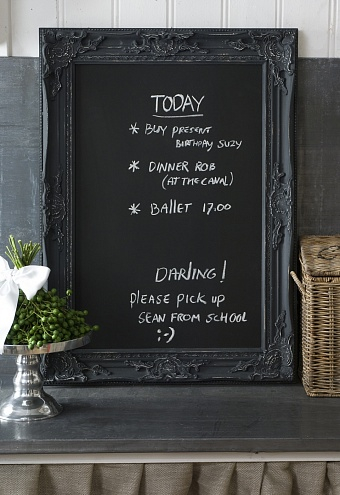 TODAY
* BUY PRESENT
BIRTHDAY SUZY
* DINNER ROB
(AT THE CANAL)
* BALLET 17.00
DARLING!
PLEASE PICK UP
SEAN FROM SCHOOL
;-)